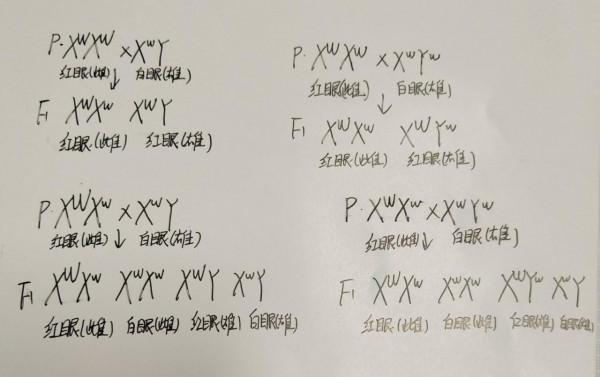 P: XᵂXᵂ × XʷY
红眼(雌) 白眼(雄)
F₁ XᵂXʷ XᵂY
红眼(雌) 红眼(雄)
P: XᵂXᵂ × XʷYʷ
红眼(雌) 白眼(雄)
F₁ XᵂXʷ XᵂYʷ
红眼(雌) 红眼(雄)
P: XᵂXʷ × XʷY
红眼(雌) 白眼(雄)
F₁ XᵂXʷ XʷXʷ XᵂY XʷY
红眼(雌) 白眼(雌) 红眼(雄) 白眼(雄)
P: XᵂXʷ × XʷYʷ
红眼(雌) 白眼(雄)
F₁ XᵂXʷ XʷXʷ XᵂYʷ XʷY
红眼(雌) 白眼(雌) 红眼(雄) 白眼(雄)